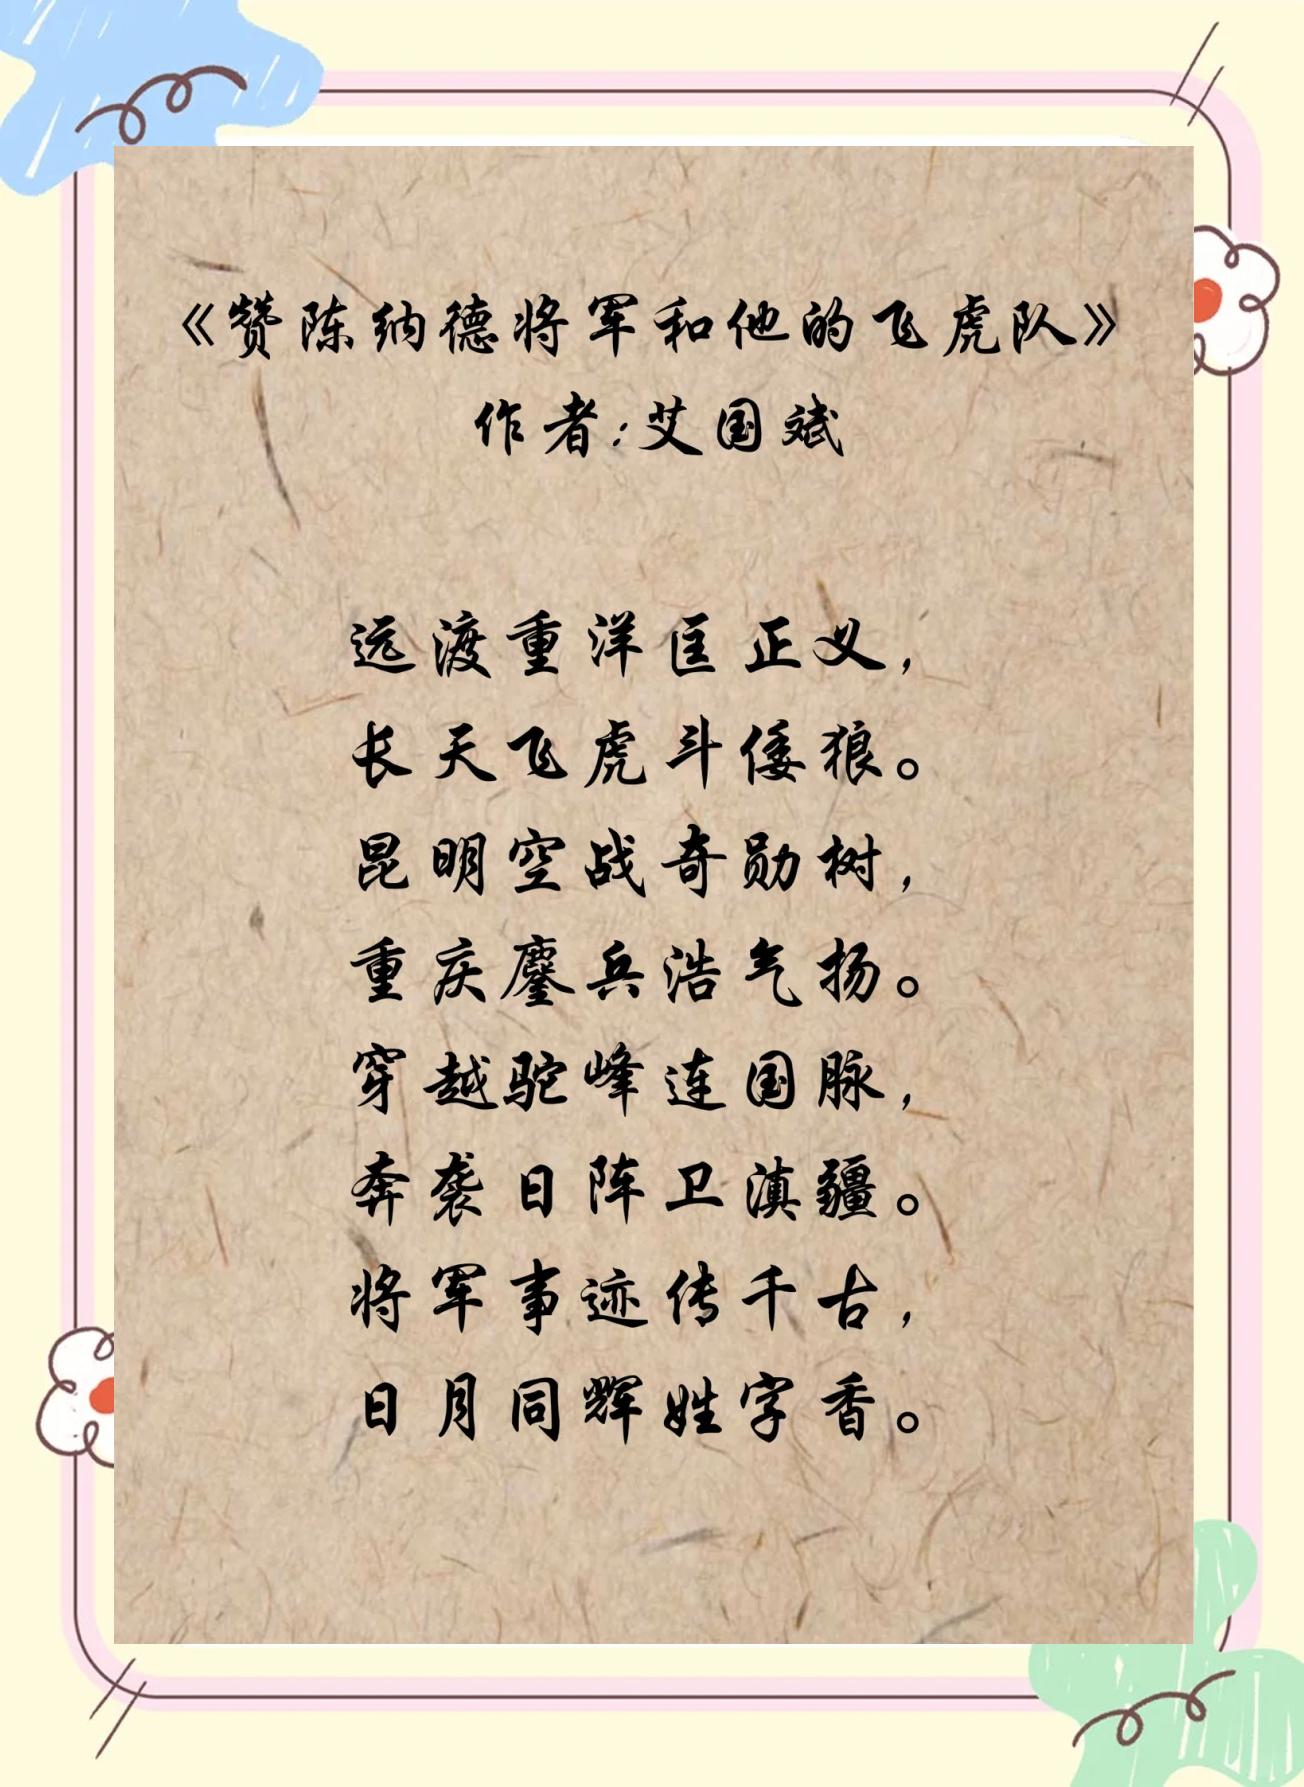 《赞陈纳德将军和他的飞虎队》
作者:艾国斌
远渡重洋匡正义，
长天飞虎斗倭狼。
昆明空战奇勋树，
重庆鏖兵浩气扬。
穿越驼峰连国脉，
奔袭日阵卫滇疆。
将军事迹传千古，
日月同辉姓字香。